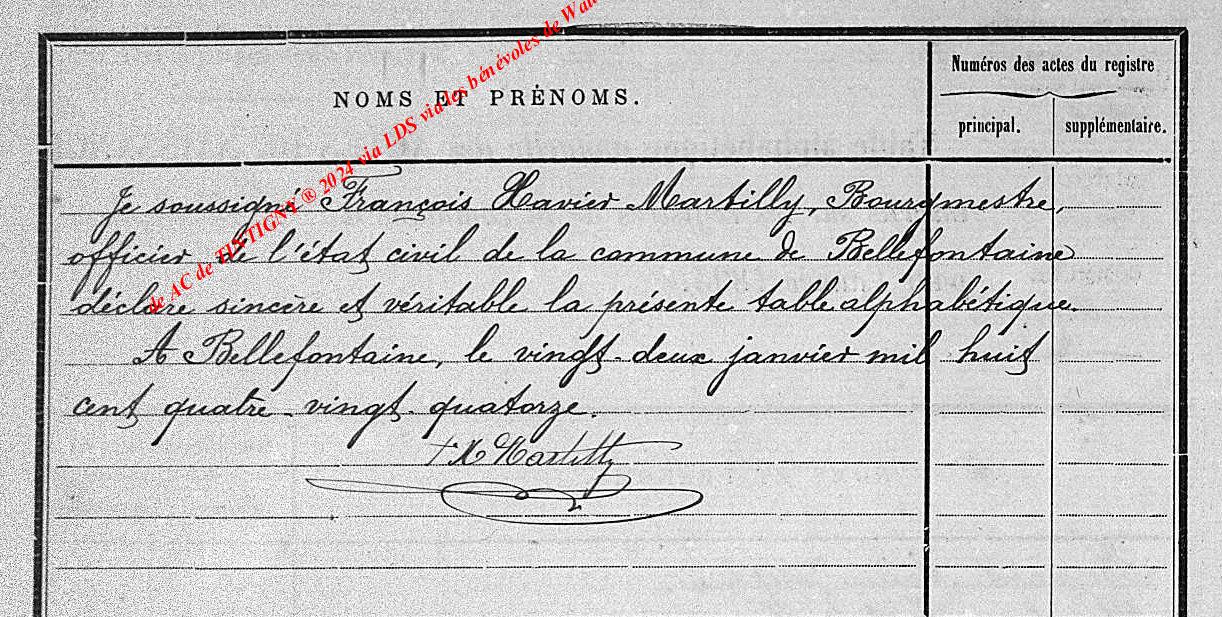 Numéros des actes du registre
NOMS ET PRÉNOMS.
principal. supplémentaire.
de AC de TINTIGNY ® 2024 via LDS via les bénévoles de
Je soussigné François Xavier Martilly, Bourgmestre,
officier de l'état civil de la commune de Bellefontaine
déclare sincère et véritable la présente table alphabétique.
A Bellefontaine, le vingt-deux janvier mil huit
cent quatre-vingt-quatorze.
Martilly